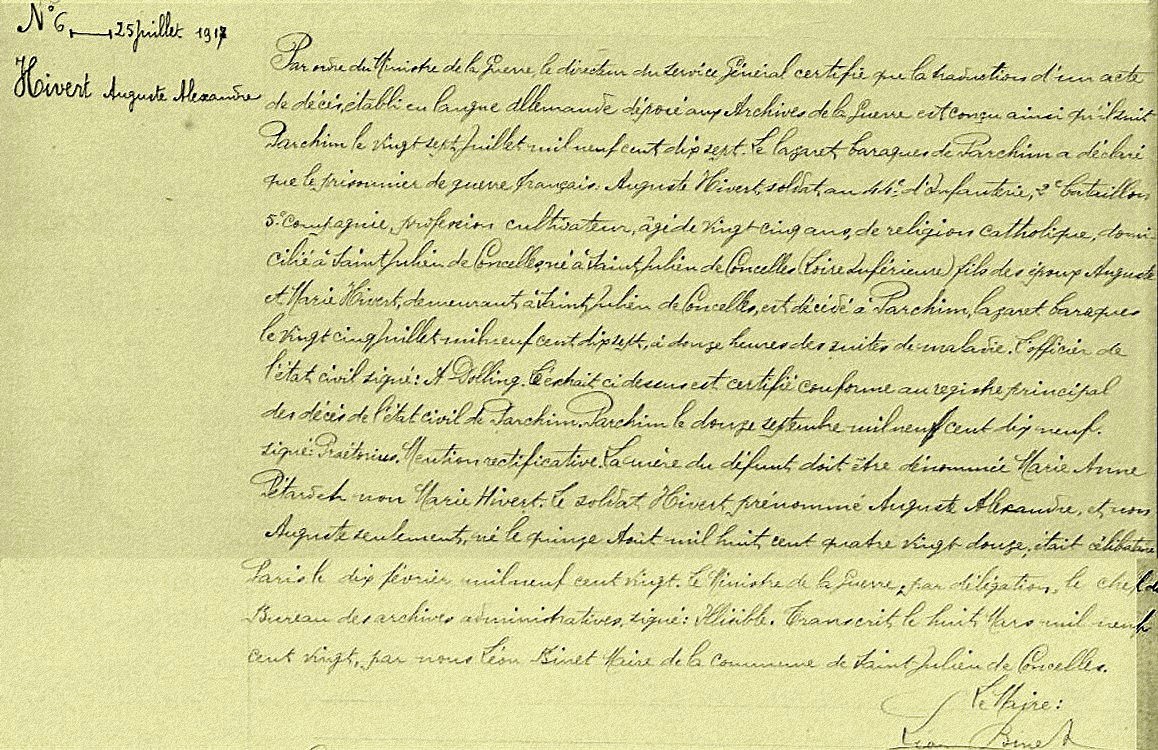 N° 6 25 Juillet 1917
Hivert Auguste Alexandre
Par ordre du Ministre de la Guerre, le directeur du service Général certifie que la traduction d'un acte
de décès, établi en langue allemande déposé aux Archives de la Guerre est conçu ainsi qu'il suit
Parchim le vingt sept Juillet mil neuf cent dix sept. Le lazaret baraques de Parchim a déclaré
que le prisonnier de guerre français. Auguste Hivert, soldat au d'Infanterie, 2e bataillon
5e Compagnie, profession cultivateur, âgé de vingt cinq ans, de religion catholique, domi-
cilié à Saint Julien de Concelles, né à Saint Julien de Concelles (Loire Inférieure) fils des époux Auguste
et Marie Hivert, demeurant à Saint Julien de Concelles, est décédé à Parchim, lazaret baraques
le vingt cinq Juillet mil neuf cent dix sept, à douze heures des suites de maladie. L'officier de
l'état civil signé: A Dölling. L'extrait ci dessus est certifié conforme au registre principal
des décès de l'état civil de Parchim. Parchim le douze septembre mil neuf cent dix neuf.
signé: Praëtorius. Mention rectificative. La mère du défunt doit être dénommée Marie Anne
Pétard et non Marie Hivert. Le soldat Hivert, prénommé Auguste Alexandre, et non
Auguste seulement, né le quinze Août mil huit cent quatre vingt douze, était célibataire
Paris le dix février mil neuf cent vingt. Le Ministre de la Guerre, par délégation, le chef du
Bureau des archives administratives, signé: Illisible. Transcrit le huit Mars mil neuf
cent vingt, par nous Léon Binet Maire de la commune de Saint Julien de Concelles.
Le Maire:
Léon Binet